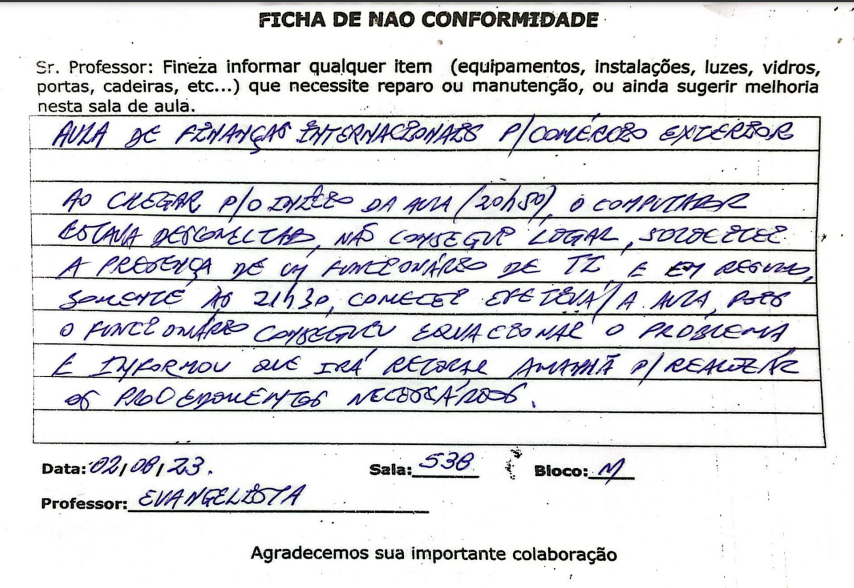 FICHA DE NAO CONFORMIDADE
Sr. Professor: Fineza informar qualquer item (equipamentos, instalações, luzes, vidros,
portas, cadeiras, etc...) que necessite reparo ou manutenção, ou ainda sugerir melhoria
nesta sala de aula.
AULA DE FINANÇAS INTERNACIONAIS P/COMÉRCIO EXTERIOR
AO CHEGAR P/O INÍCIO DA AULA (20h50), O COMPUTADOR
ESTAVA DESCONECTADO, NÃO CONSEGUI LOGAR, SOLICITEI
A PRESENÇA DE UM FUNCIONÁRIO DE TI, E EM RESUMO,
SOMENTE ÀS 21h30, COMECEI EFETIVA/ A AULA, POIS
O FUNCIONÁRIO CONSEGUIU EQUACIONAR O PROBLEMA
E INFORMOU QUE IRÁ RETORNAR AMANHÃ P/REALIZAR
OS PROCEDIMENTOS NECESSÁRIOS.
Data: 02/08/23. Sala: 538 Bloco: M
Professor: EVANGELISTA
Agradecemos sua importante colaboração